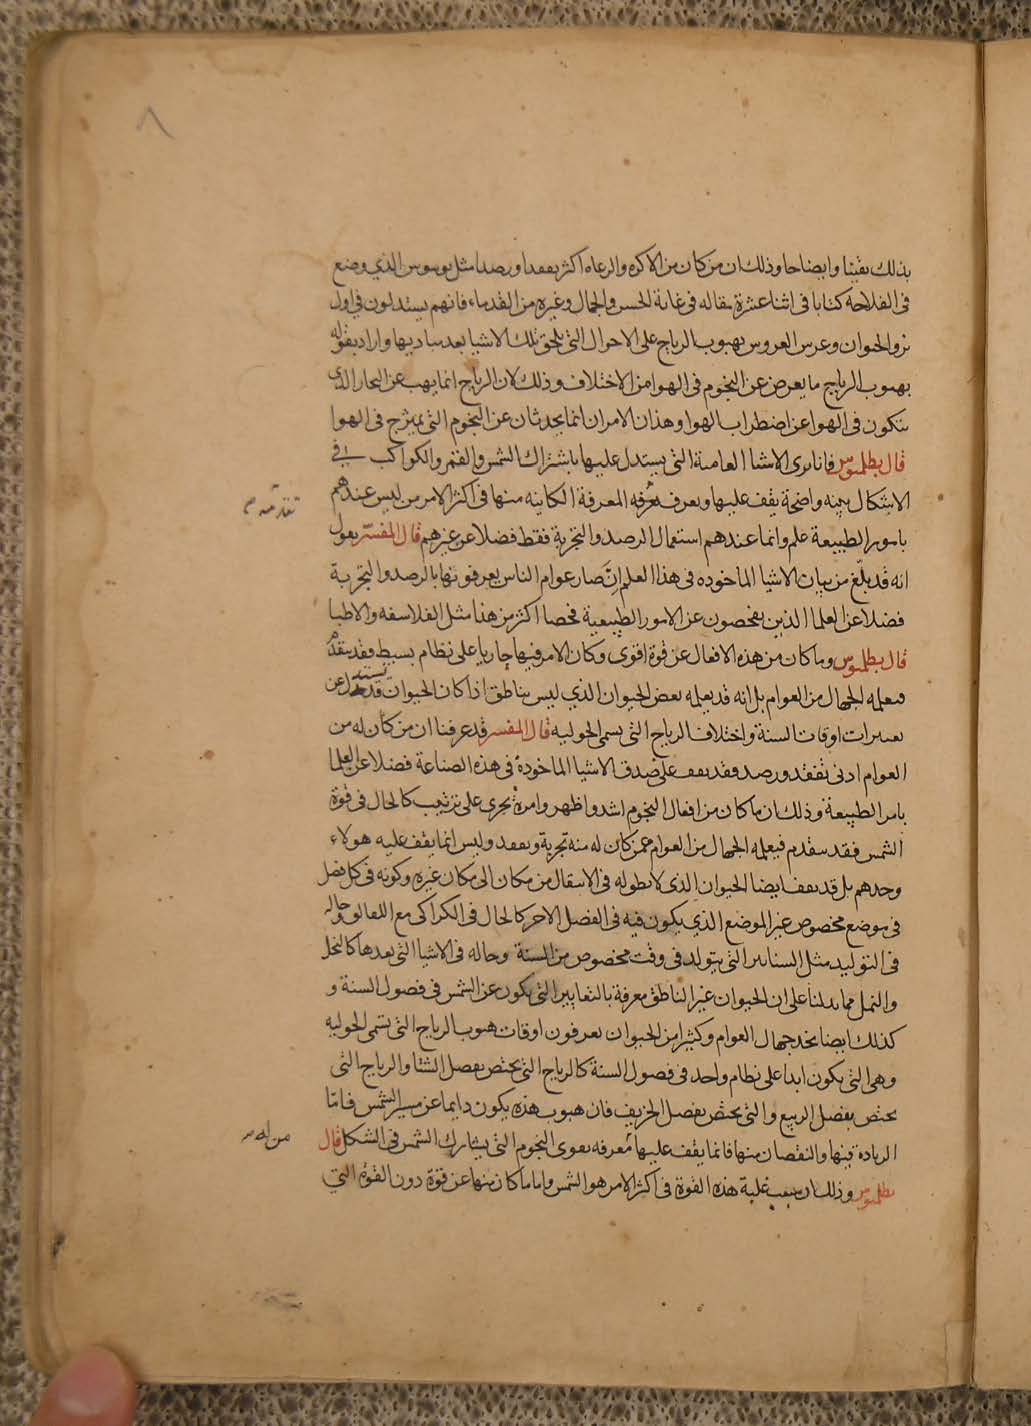 ٨
بذلك يقينا وايضاحا وذلك ان من كان من الاكره والرعاه اكثر تفقدا ورصدا مثل الذي وضع
فى الفلاحة كتابا فى اثنا عشرة مقاله فى غاية الحسن والجمال وغيره من القدماء فانهم يستدلون فى اول
نزو الحيوان وغرس الغروس بهبوب الرياح على الاحوال التى يلحق تلك الاشيا بعد مباديها واراد بقوله
بهبوب الرياح ما يعرض عن النجوم فى الهوا من الاختلاف وذلك لان الرياح انما يهب عن البخار الذى
يتكون فى الهوا عن اضطراب الهوا وهذان الامران انما يحدثان عن النجوم التى يمتزج فى الهوا
قال بطلميوس فانا نرى الاشيا العامية التى يستدل عليها باشتراك الشمس والقمر والكواكب فى
الاشكال بينه واضحة يقف عليها ويعرف المعرفة الكاينه منها فى اكثر الامر من ليس عندهم
تقدمته
بامور الطبيعة علم وانما عندهم استعمال الرصد والتجربة فقط فضلا عن غيرهم قال المفسر يقول
انه قد بلغ من بيان الاشيا الماخوده فى هذا العلم ان صار عوام الناس يعرفونها بالرصد والتجربة
فضلا عن العلما الذين يفحصون عن الامور الطبيعية فحصا اكثر من هذا مثل الفلاسفه والاطبا
قال بطلميوس وما كان من هذه الافعال عن قوة اقوى وكان الامر فيها جاريا على نظام بسيط فقد يتقدم
فيعلمه الجهال من العوام بل انه قد يعلمه بعض الحيوان الذي ليس بناطق اذا كان الحيوان قد يستدل عن
تغييرات اوقات السنة واختلاف الرياح التى تسمى الحوليه قال المفسر قد عرفنا ان من كان له من
العوام ادنى تفقد ورصد فقد يقف على صدق الاشيا الماخودة فى هذه الصناعة فضلا عن العلما
بامر الطبيعة وذلك ان ما كان من افعال النجوم اشد واظهر وامره يجرى على ترتيب كالحال فى قوة
الشمس فقد يتقدم فيعلمه الجهال من العوام ممن كان له منه تجربة وتفقد وليس انما يقف عليه هولاء
وحدهم بل قد يقف ايضا الحيوان الذى لا نطق له فى الانتقال من مكان الى مكان غيره وكونه فى كل فصل
فى موضع مخصوص غير الموضع الذي يكون فيه فى الفصل الاخر كالحال فى الكراكى مع اللقالق وحاله
فى التوليد مثل السنانير التى يتولد فى وقت مخصوص من السنة وحاله فى الاشيا التى يعدها كالنحل
والنمل مما يدلنا على ان الحيوان غير الناطق معرفة بالتغايير التى يكون عن الشمس فى فصول السنة و
كذلك ايضا نجد جهال العوام وكثيرا من الحيوان يعرفون اوقات هبوب الرياح التى تسمى الحوليه
وهى التى يكون ابدا على نظام واحد فى فصول السنة كالرياح التى يختص بفصل الشتا والرياح التى
يختص بفصل الربيع والتى يختص بفصل الخريف فان هبوب هذه يكون دايما عن مسير الشمس فاما
الزيادة فيها والنقصان منها فانما يقف عليها معرفه بقوى النجوم التى يشارك الشمس فى الشكل قال
من له
بطلميوس وذلك ان سبب غلبة هذه القوة فى اكثر الامر هو الشمس واما ما كان منها عن قوة دون القوة التى